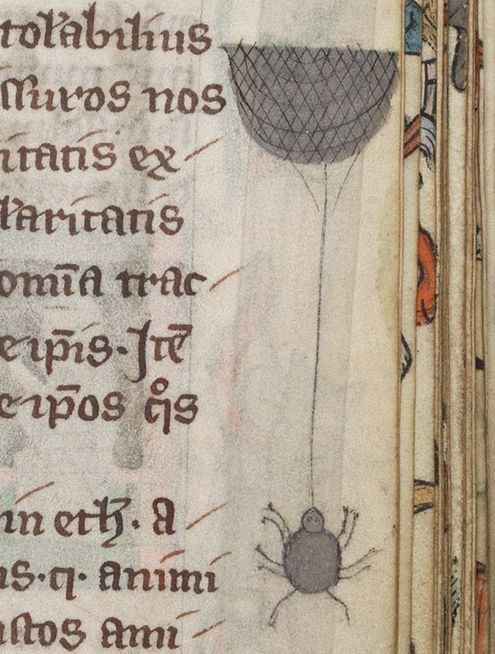 tolabilius
ssuros nos
itatis ex
laritatis
omīa trac
e ip̄is. Itē
e ip̄os qͦs
in eth. a
is. q. animi
istos ami